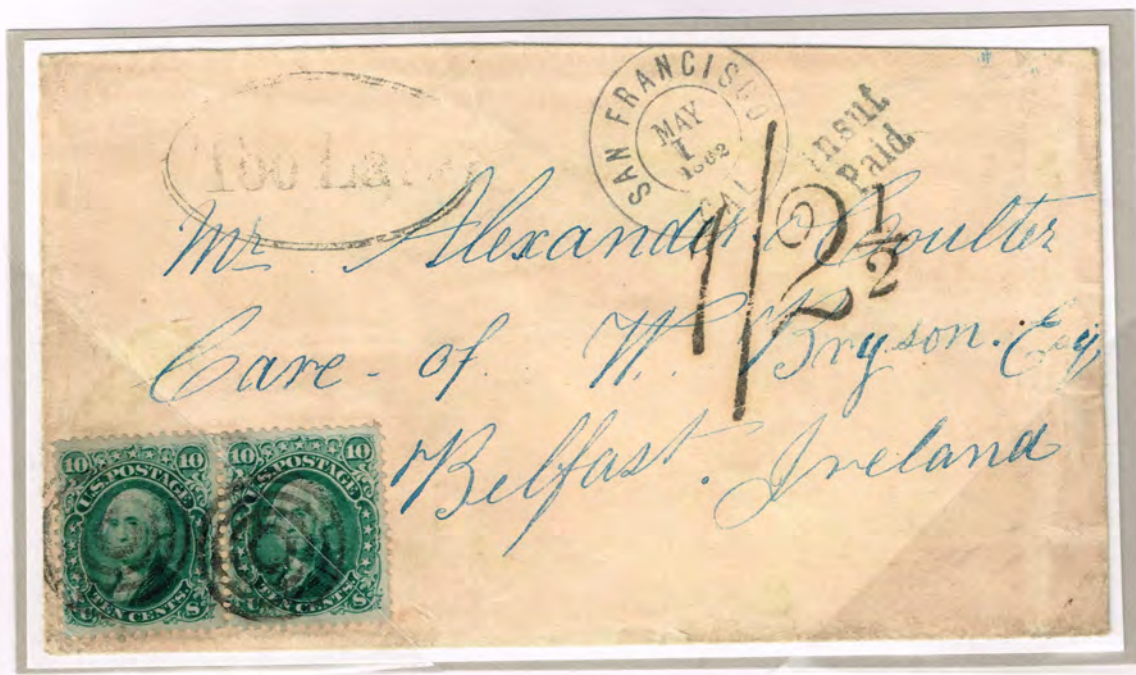 SAN FRANCISCO
MAY
1
1862
CAL
insuf
Paid
1/2 1/2
Mr. Alexander Coulter
Care - of. W. Bryson. Esq
Belfast. Ireland
10 10
U.S. POSTAGE
TEN CENTS.
U S
10 10
U.S. POSTAGE
TEN CENTS.
U S